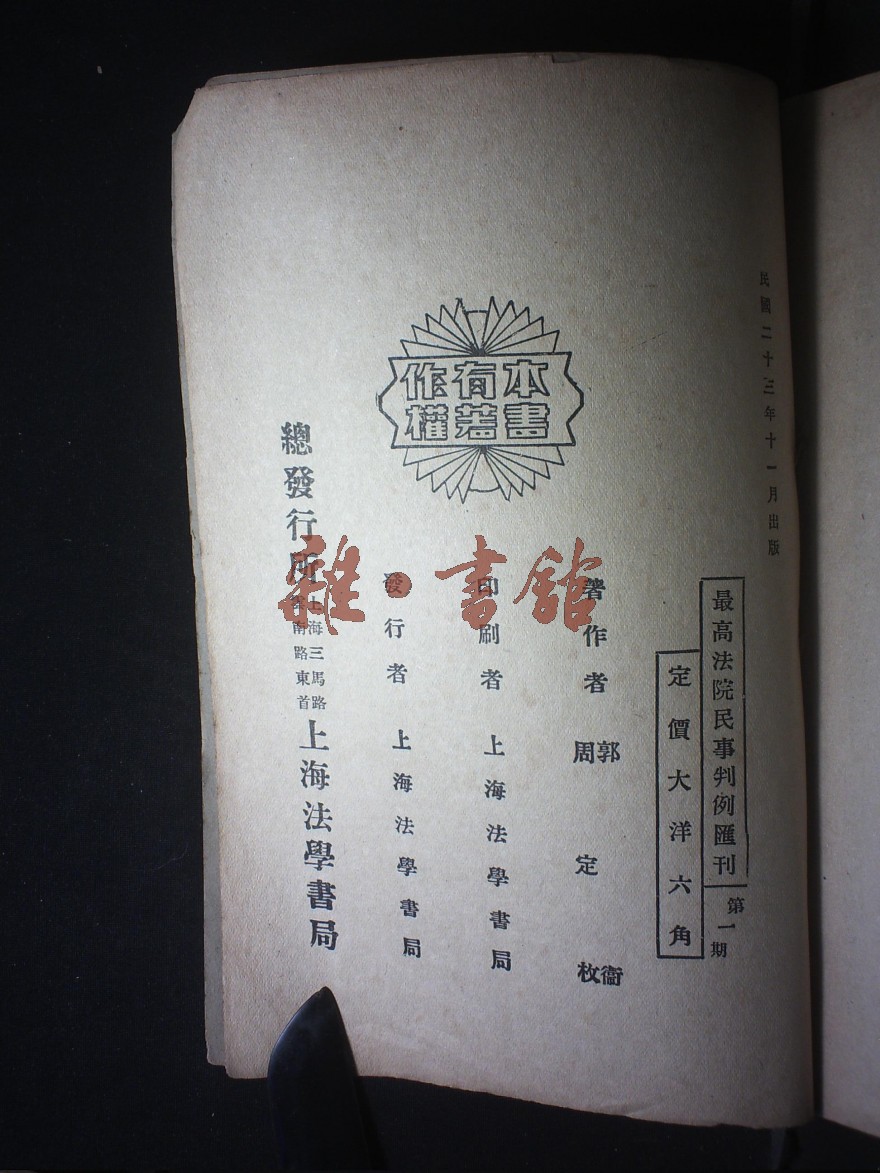 民國二十三年十一月出版
最高法院民事判例匯刊 第一期
定價大洋六角
本書有著作權
著作者 郭衞 周定枚
印刷者 上海法學書局
發行者 上海法學書局
總發行所 上海三馬路雲南路東首 上海法學書局
雜·書館